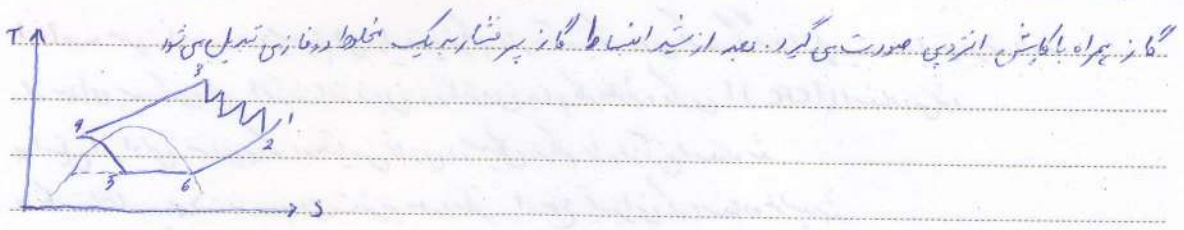 گاز همراه با کاهش انرژی صورت می گیرد. بعد از شیر انبساط گاز پر فشار به یک مخلوط دو فازی تبدیل می شود
T
3
1
2
4
5
6
S